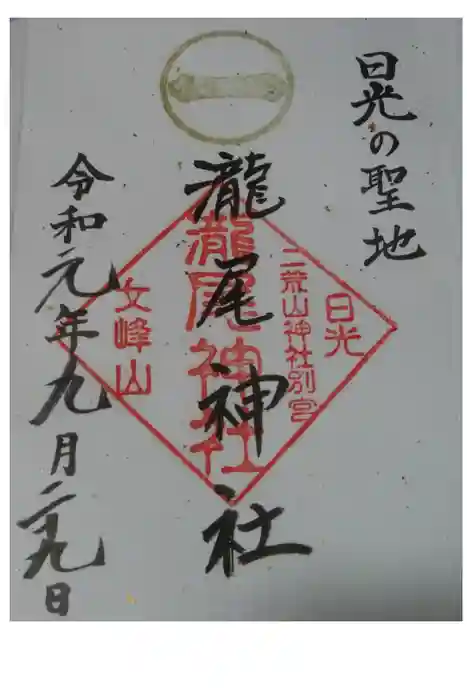 日光の聖地
瀧尾神社
令和元年九月二十九日
日光
二荒山神社別宮
瀧尾神社
女峰山
一